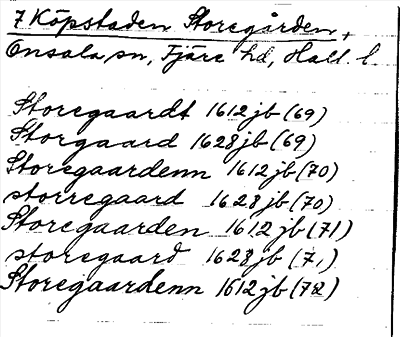 7 Köpstaden Storegården,
Onsala sn, Fjäre hd, Hall. l
Storegaardt 1612 jb (69)
Storgaard 1628 jb (69)
Storegaardenn 1612 jb (70)
storregaard 1628 jb (70)
Storegaarden 1612 jb (71)
storegaard 1628 jb (71)
Storegaardenn 1612 jb (72)